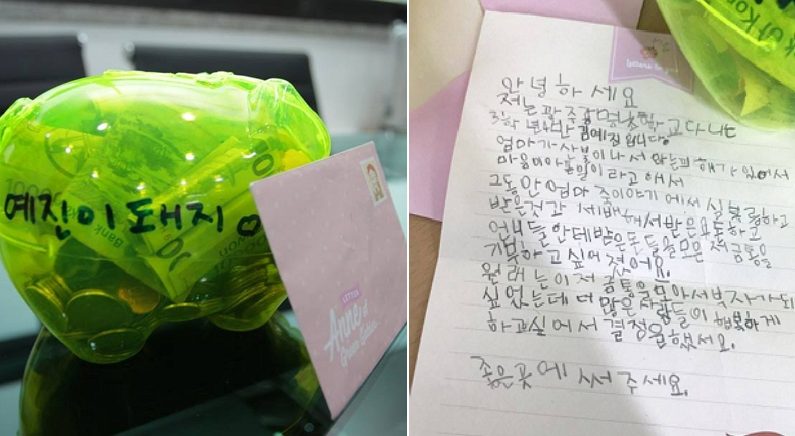 예진이 돼지
LETTER
Anne of
Green Gables
안녕하세요
저는 광명초학교다니는
3학년 반 김예진입니다.
엄마가 산불이나서 많은피해가있어서
마음이아픈일이라고해서
그동안 엄마 에서 심부름하고
받은것과 세배해서받은용돈하고
언니들한테받은돈들을모은저금통을
기부하고싶어졌어요.
원래는이저금통을모아서부자가되
싶었는데 더많은사람들이 행복하게
하고싶어서 결정을했서요.
좋은곳에 써주세요.